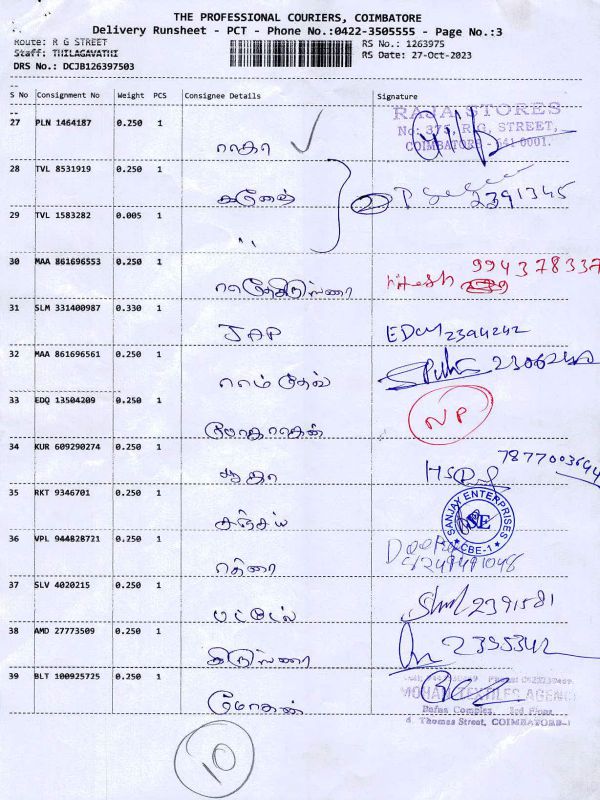 THE PROFESSIONAL COURIERS, COIMBATORE
Delivery Runsheet - PCT - Phone No.:0422-3505555 - Page No.:3
Route: R G STREET
RS No.: 1263975
Staff: THILAGAVATHI
RS Date: 27-Oct-2023
DRS No.: DCJB126397503
S No Consignment No Weight PCS Consignee Details Signature
27 PLN 1464187 0.250 1
RAJA STORES
No: 375, R.G. STREET,
COIMBATORE - 641 0001.
ராகா
28 TVL 8531919 0.250 1
கணேஷ் 2 2391345
29 TVL 1583282 0.005 1
"
30 MAA 861696553 0.250 1
hitesh 994378337
31 SLM 331400987 0.330 1
JAP EDCM 2394242
32 MAA 861696561 0.250 1
ராம்தேவ்
33 EDQ 13504209 0.250 1
NP
34 KUR 609290274 0.250 1
7877003694
HSP
35 RKT 9346701 0.250 1
SANJAY ENTERPRISES
SE
CBE-1
சஞ்சய்
36 VPL 944828721 0.250 1
37 SLV 4020215 0.250 1
பட்டேல் 2391581
38 AMD 27773509 0.250 1
2395342
39 BLT 100925725 0.250 1
MOHAN TEXTILES AGENC
Dafus Complex, 3rd Floor,
Thomas Street, COIMBATORE-
மோகன்
10